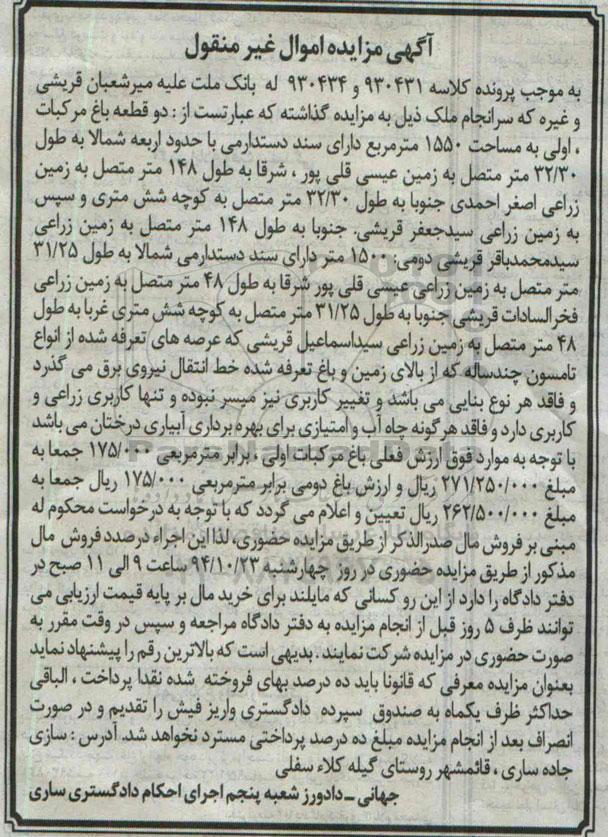 آگهی مزایده اموال غیر منقول
به موجب پرونده کلاسه ۹۳۰۴۳۱ و ۹۳۰۴۳۴ له بانک ملت علیه میرشعبان قریشی
و غیره که سرانجام ملک ذیل به مزایده گذاشته که عبارتست از : دو قطعه باغ مرکبات
، اولی به مساحت ۱۵۵۰ مترمربع دارای سند دستدارمی با حدود اربعه شمالا به طول
۳۲/۳۰ متر متصل به زمین عیسی قلی پور ، شرقا به طول ۱۴۸ متر متصل به زمین
زراعی اصغر احمدی جنوبا به طول ۳۲/۳۰ متر متصل به کوچه شش متری و سپس
به زمین زراعی سیدجعفر قریشی. جنوبا به طول ۱۴۸ متر متصل به زمین زراعی
سیدمحمدباقر قریشی دومی: ۱۵۰۰ متر دارای سند دستدارمی شمالا به طول ۳۱/۲۵
متر متصل به زمین زراعی عیسی قلی پور شرقا به طول ۴۸ متر متصل به زمین زراعی
فخرالسادات قریشی جنوبا به طول ۳۱/۲۵ متر متصل به کوچه شش متری غربا به طول
۴۸ متر متصل به زمین زراعی سیداسماعیل قریشی که عرصه های تعرفه شده از انواع
تامسون چندساله که از بالای زمین و باغ تعرفه شده خط انتقال نیروی برق می گذرد
و فاقد هر نوع بنایی می باشد و تغییر کاربری نیز میسر نبوده و تنها کاربری زراعی و
کاربری دارد و فاقد هرگونه چاه آب و امتیازی برای بهره برداری آبیاری درختان می باشد
با توجه به موارد فوق ارزش فعلی باغ مرکبات اولی ، برابر مترمربعی ۱۷۵/۰۰۰ جمعا به
مبلغ ۲۷۱/۲۵۰/۰۰۰ ریال و ارزش باغ دومی برابر مترمربعی ۱۷۵/۰۰۰ ریال جمعا به
مبلغ ۲۶۲/۵۰۰/۰۰۰ ریال تعیین و اعلام می گردد که با توجه به درخواست محکوم له
مبنی بر فروش مال صدرالذکر از طریق مزایده حضوری، لذا این اجراء درصدد فروش مال
مذکور از طریق مزایده حضوری در روز چهارشنبه ۹۴/۱۰/۲۳ ساعت ۹ الی ۱۱ صبح در
دفتر دادگاه را دارد از این رو کسانی که مایلند برای خرید مال بر پایه قیمت ارزیابی می
توانند ظرف ۵ روز قبل از انجام مزایده به دفتر دادگاه مراجعه و سپس در وقت مقرر به
صورت حضوری در مزایده شرکت نمایند . بدیهی است که بالاترین رقم را پیشنهاد نماید
بعنوان مزایده معرفی که قانونا باید ده درصد بهای فروخته شده نقدا پرداخت ، الباقی
حداکثر ظرف یکماه به صندوق سپرده دادگستری واریز فیش را تقدیم و در صورت
انصراف بعد از انجام مزایده مبلغ ده درصد پرداختی مسترد نخواهد شد. آدرس : سازی
جاده ساری ، قائمشهر روستای گیله کلاء سفلی
جهانی – دادورز شعبه پنجم اجرای احکام دادگستری ساری